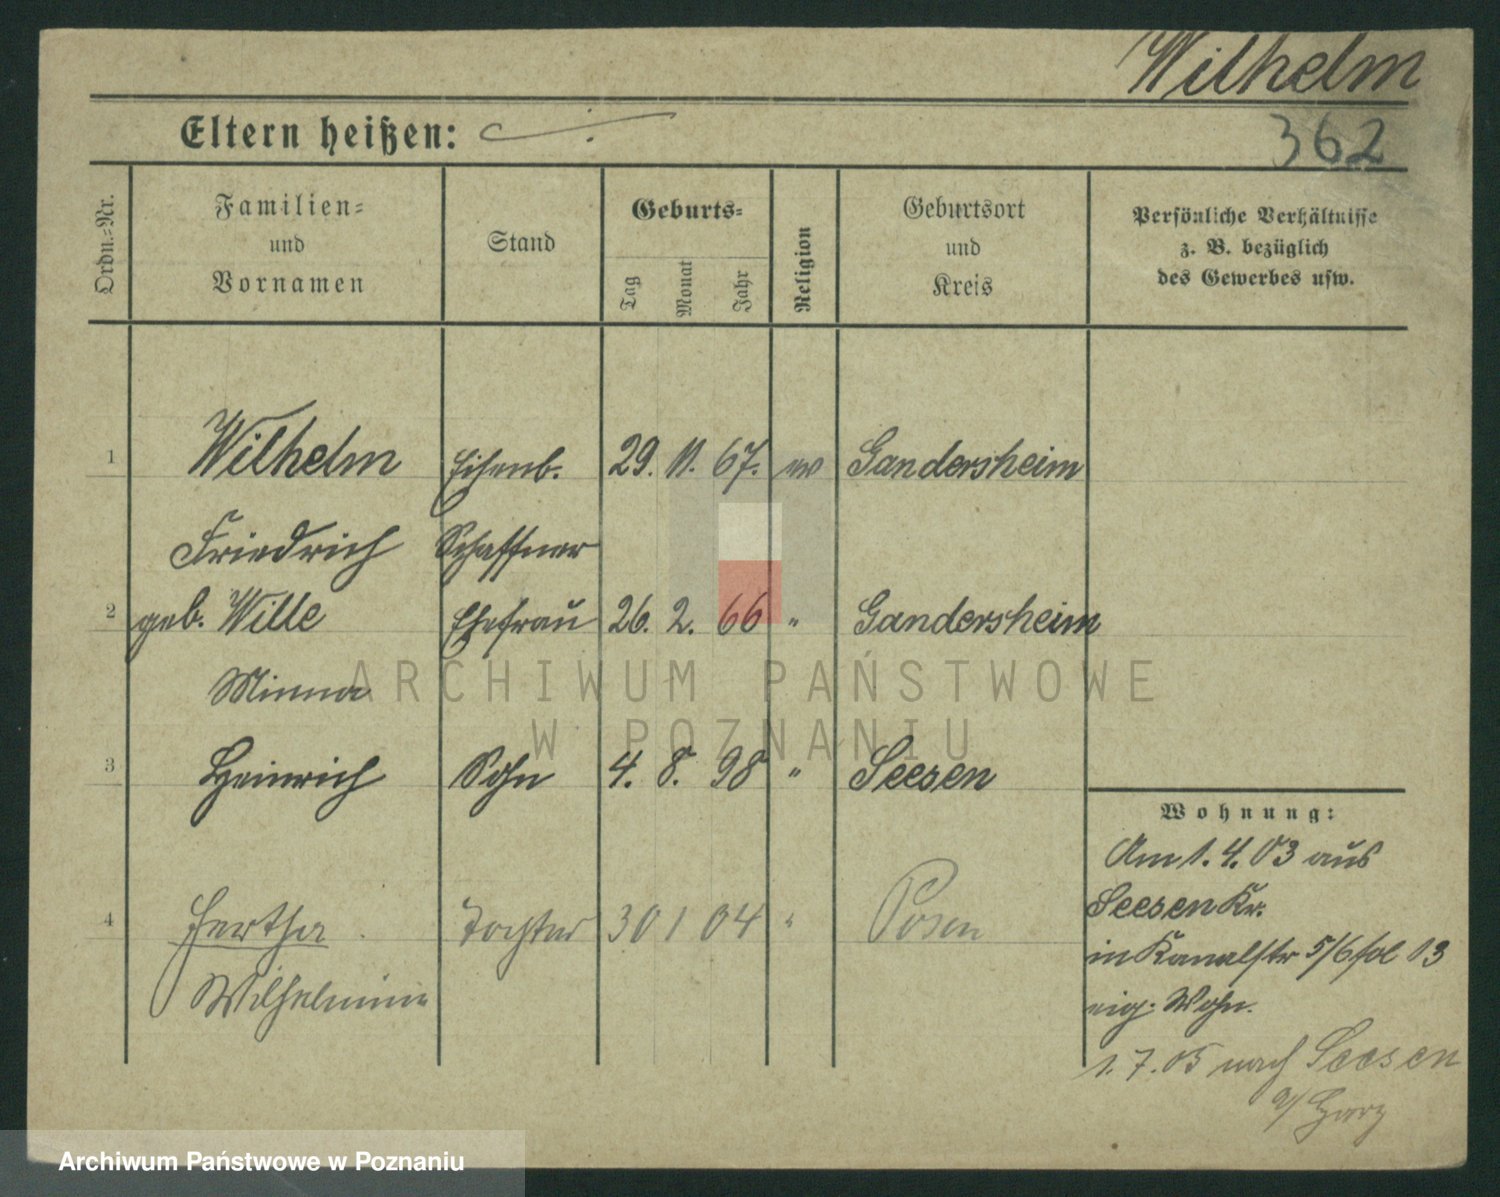 Wilhelm
Eltern heißen: ./.
362
Ordn.-Nr.
Familien-
und
Vornamen
Stand
Geburts-
Tag
Monat
Jahr
Religion
Geburtsort
und
Kreis
Persönliche Verhältnisse
z. B. bezüglich
des Gewerbes usw.
1 Wilhelm Eisenb. 29. 11. 67. ev Gandersheim
Friedrich Schaffner
2 geb. Wille Ehefrau 26. 2. 66 " Gandersheim
Minna
3 Heinrich Sohn 4. 8. 98 " Seesen
Wohnung:
Am 1. 4. 03 aus
Seesen Kr.
in Kanalstr 5/6 fol 13
eig. Wohn.
1. 7. 05 nach Seesen
a/ Harz
4 Hertha Tochter 30 1 04 " Posen
Wilhelmine
ARCHIWUM PAŃSTWOWE
W POZNANIU
Archiwum Państwowe w Poznaniu